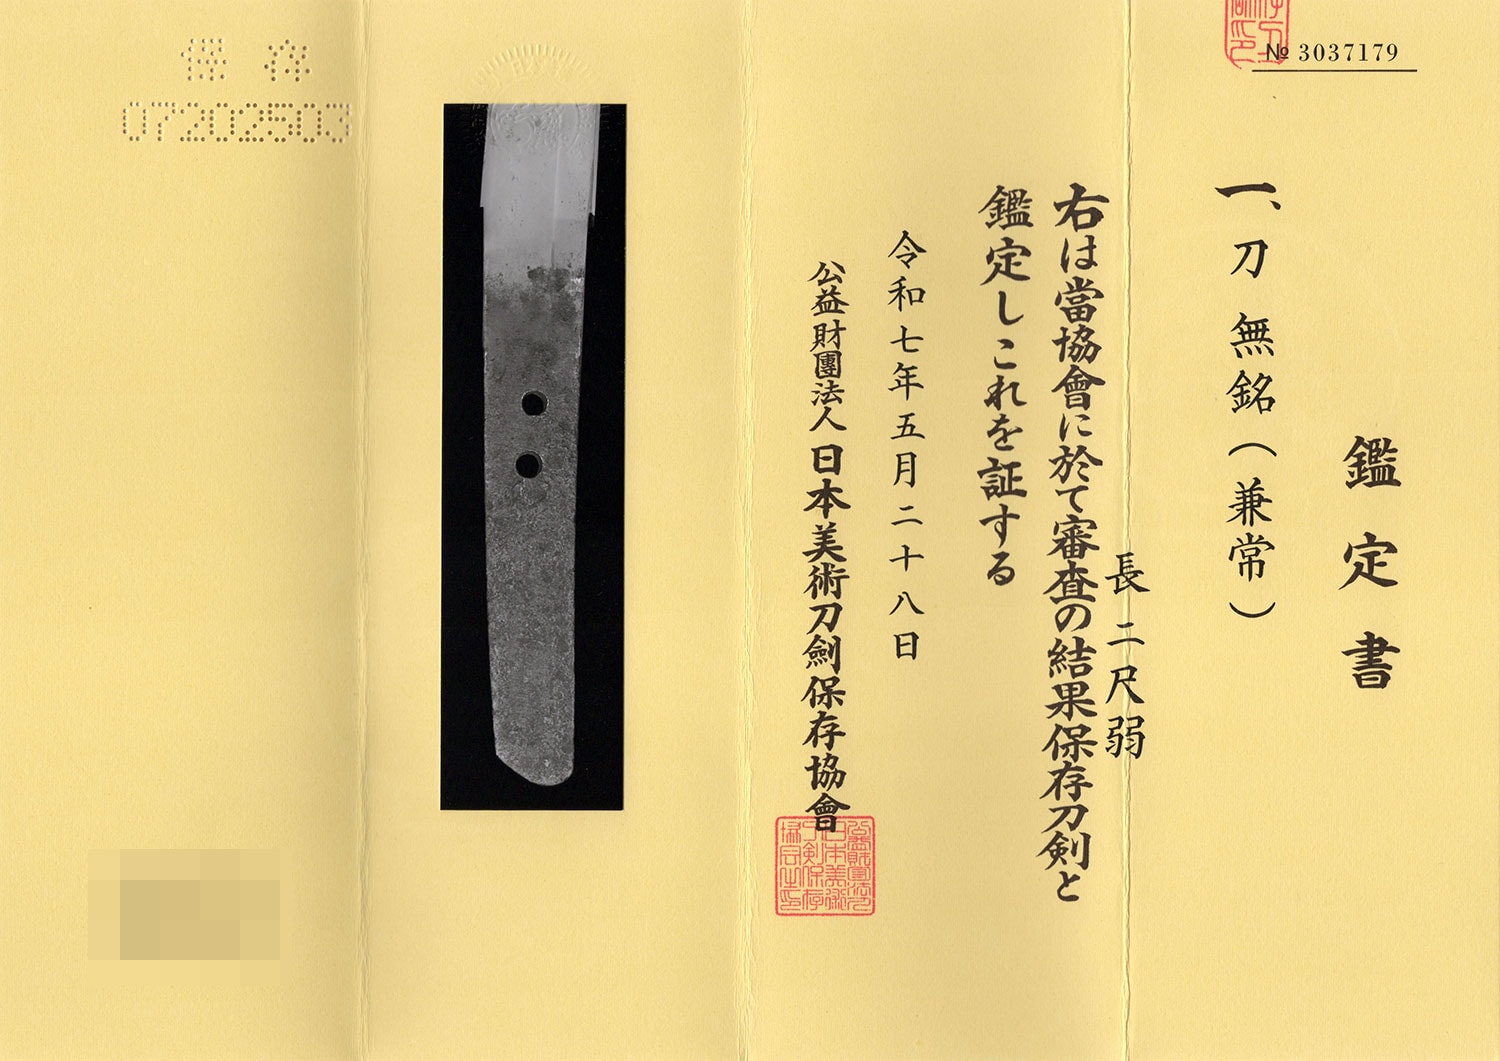 № 3037179
鑑定書
一、刀 無銘（兼常）
長 二尺弱
右は當協會に於て審査の結果保存刀剣と
鑑定しこれを証する
令和七年五月二十八日
公益財團法人 日本美術刀劍保存協會
保存
07202503